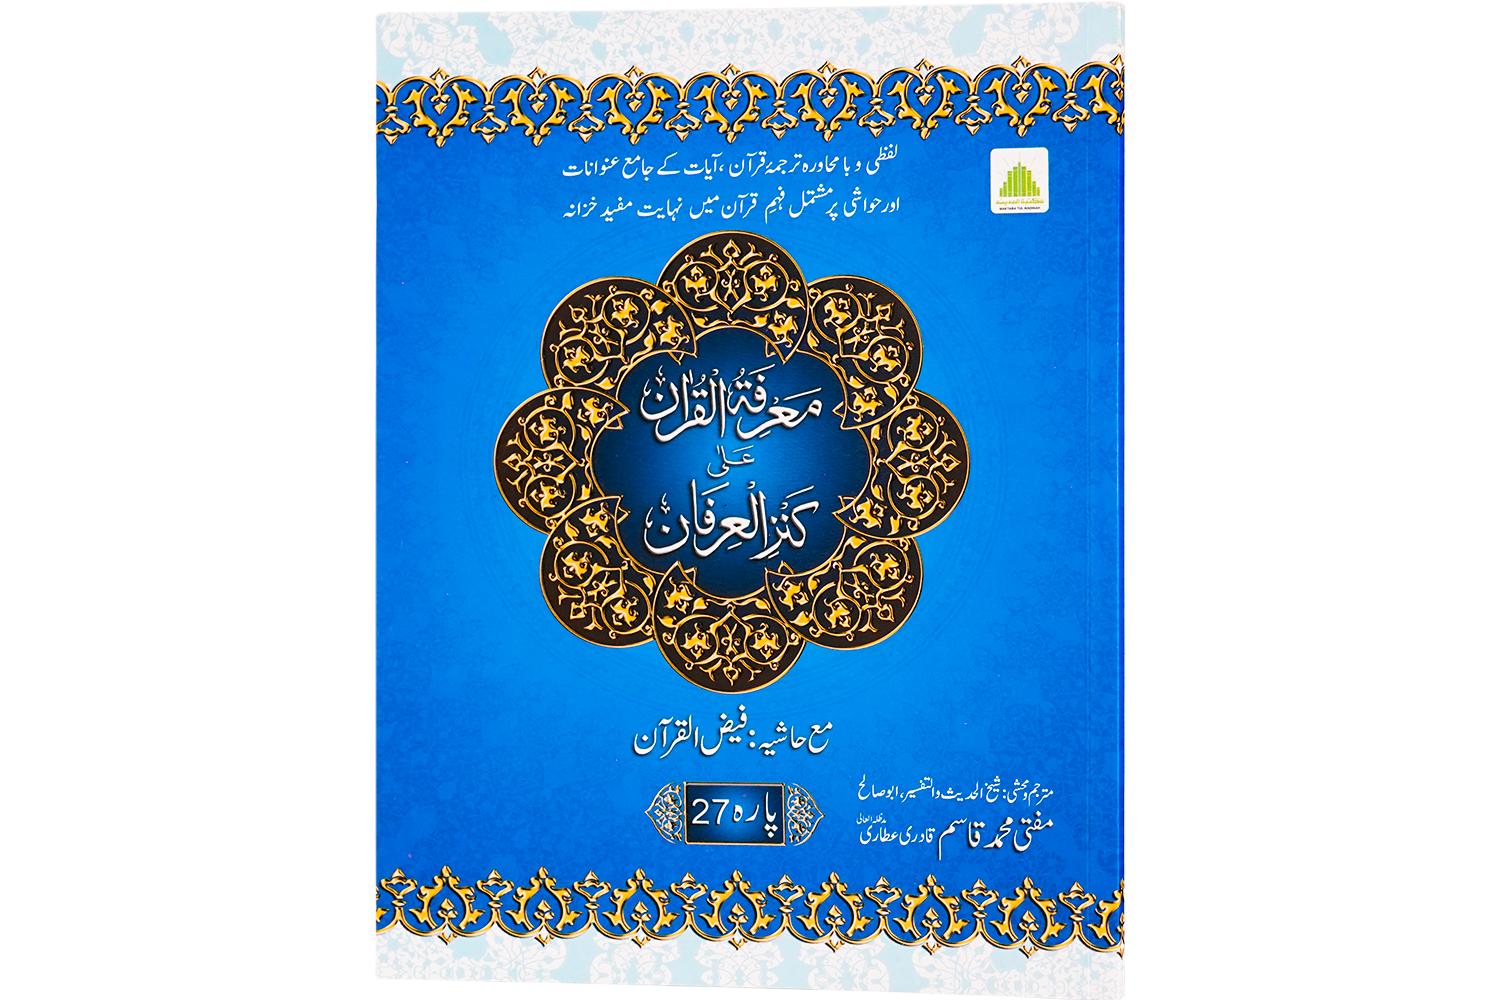 لفظی و بامحاورہ ترجمۂ قرآن، آیات کے جامع عنوانات
اور حواشی پر مشتمل فہمِ قرآن میں نہایت مفید خزانہ
مکتبۃ المدینہ
MAKTABA TUL MADINAH
مَعْرِفَةُ الْقُرْاٰن
عَلٰی
كَنْزِ الْعِرْفَان
مع حاشیہ: فیض القرآن
پارہ 27
مترجم و محشی: شیخ الحدیث والتفسیر، ابو صالح
مفتی محمد قاسم قادری عطاری مدظلہ العالی